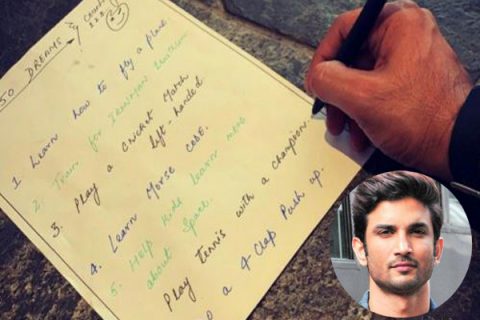 50 DREAMS &
1. Learn how to fly a plane
2. Train for IRONMAN triathlon
3. Play a Cricket Match
left-handed
4. Learn Morse code.
5. Help kids learn more
about Space.
Play tennis with a champion
a 4 Clap Push up.